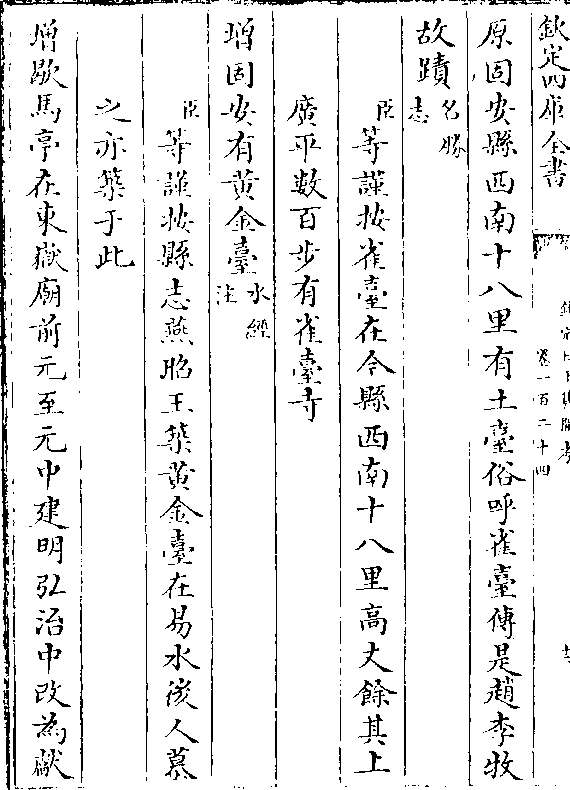 欽定四庫全書
卷一百二十四
原固安縣西南十八里有土臺俗呼雀臺傳是趙李牧
故蹟名勝志
臣等謹按雀臺在今縣西南十八里高丈餘其上
廣平數百步有雀臺寺
增固安有黄金臺水經注
臣等謹按縣志燕昭王築黄金臺在易水後人慕
之亦築于此
增歇馬亭在東嶽廟前元至元中建明弘治中改為獻